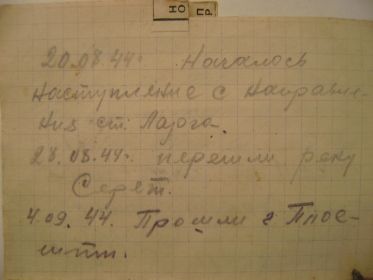 НО
ПР
20.08.44г. Началось
наступление с направле-
ния ст. Лазога.
28.08.44г. перешли реку
Серет.
4.09.44. Прошли г Плое-
шти.